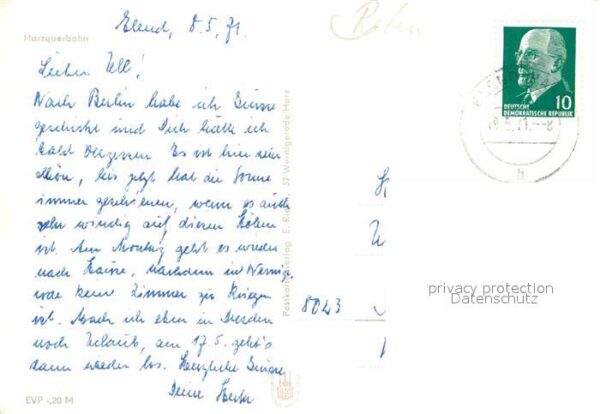 Harzquerbahn
Elend, 8.5.71.
Lieber Uell!
Nach Berlin habe ich Grüsse
geschickt und Dich hätte ich
bald vergessen. Es ist hier sehr
schön, bis jetzt hat die Sonne
immer geschienen, wenn es auch
sehr windig auf diesen Höhen
ist. Am Montag geht es wieder
nach Hause, nachdem in Wernige-
rode kein Zimmer zu kriegen
ist. Mach ich eben in Dresden
noch Urlaub, am 17.5. geht's
dann wieder los. Herzliche Grüsse
Deine
EVP -,20 M
Postkartenverlag E. 37 Wernigerode/Harz
8023
DEUTSCHE
DEMOKRATISCHE REPUBLIK
10
b
privacy protection
Datenschutz